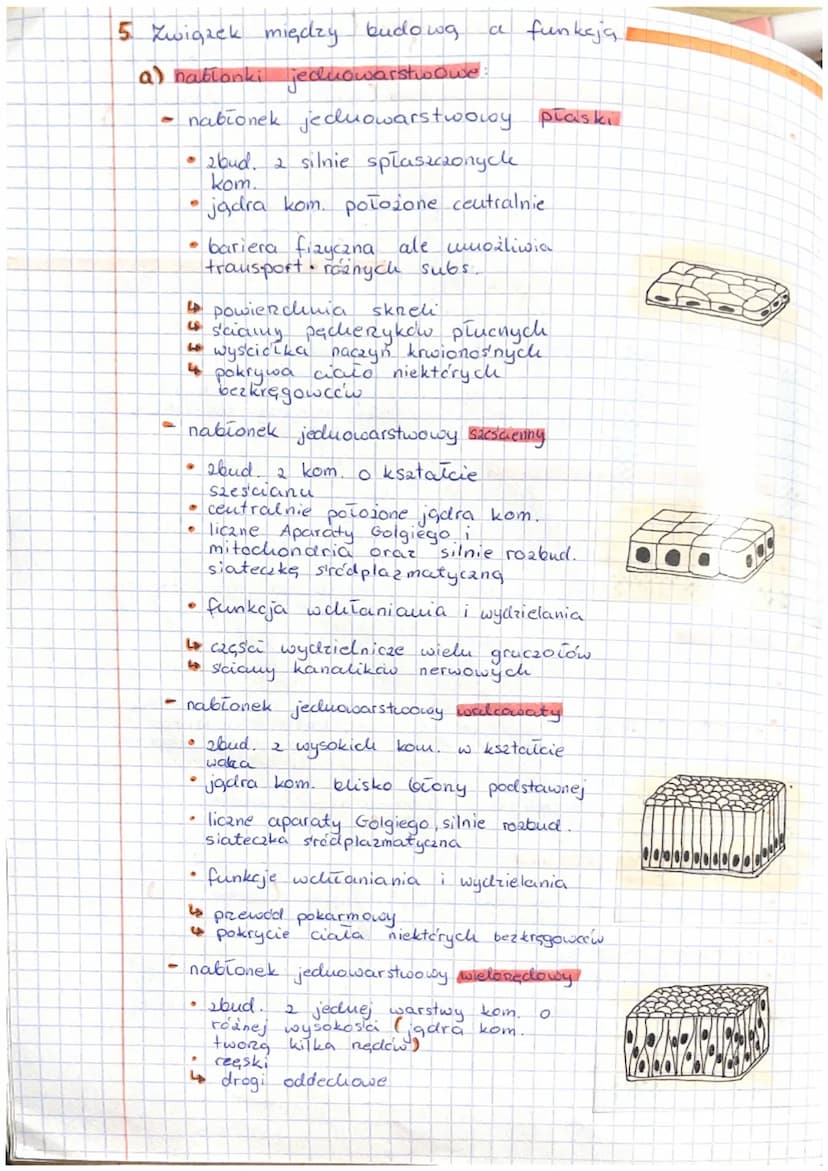 5. Związek między budową a funkcją
a) nabłonki jednowarstwowe:
- nabłonek jednowarstwowy płaski
• zbud. z silnie spłaszczonych
kom.
• jądra kom. położone centralnie
• bariera fizyczna ale umożliwia
transport różnych subs.
↳ powierzchnia skrzeli
↳ ściany pęcherzyków płucnych
↳ wyściółka naczyń krwionośnych
↳ pokrywa ciało niektórych
bezkręgowców
- nabłonek jednowarstwowy sześcienny
• zbud. z kom. o kształcie
sześcianu
• centralnie położone jądra kom.
• liczne Aparaty Golgiego i
mitochondria oraz silnie rozbud.
siateczkę śródplazmatyczną
• funkcja wchłaniania i wydzielania
↳ części wydzielnicze wielu gruczołów
↳ ściany kanalików nerwowych
- nabłonek jednowarstwowy walcowaty
• zbud. z wysokich kom. w kształcie
walca
• jądra kom. blisko błony podstawnej
• liczne aparaty Golgiego, silnie rozbud.
siateczka śródplazmatyczna
• funkcje wchłaniania i wydzielania
↳ przewód pokarmowy
↳ pokrycie ciała niektórych bezkręgowców
- nabłonek jednowarstwowy wielorzędowy
• zbud. z jednej warstwy kom. o
różnej wysokości (jądra kom.
tworzą kilka rzędów)
• rzęski
↳ drogi oddechowe